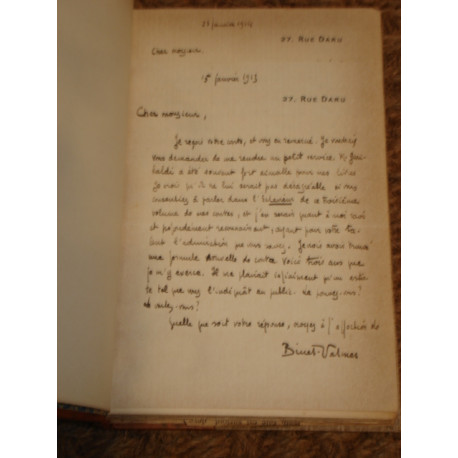 15 janvier 1913
27, RUE DARU
Cher monsieur,
15 janvier 1913
27, RUE DARU
Cher monsieur,
Je reçois votre carte, et vous en remercie. Je voudrais
vous demander de me rendre un petit service.
a été souvent fort aimable pour nos livres
Je crois qu'il ne lui serait pas désagréable si vous
à parler dans l' de ce troisième
volume de mes contes, et j'en serais quant à moi ravi
et profondément reconnaissant, ayant pour votre ta-
lent l'admiration que vous savez. Je crois avoir trouvé
une formule nouvelle de conte. Voici trois ans que
je m'y exerce. Il me plairait infiniment qu'un artis-
te tel que vous l'indiquât au public. Le pouvez-vous?
Le voulez-vous?
Quelle que soit votre réponse, croyez à l'affection de
Binet-Valmer